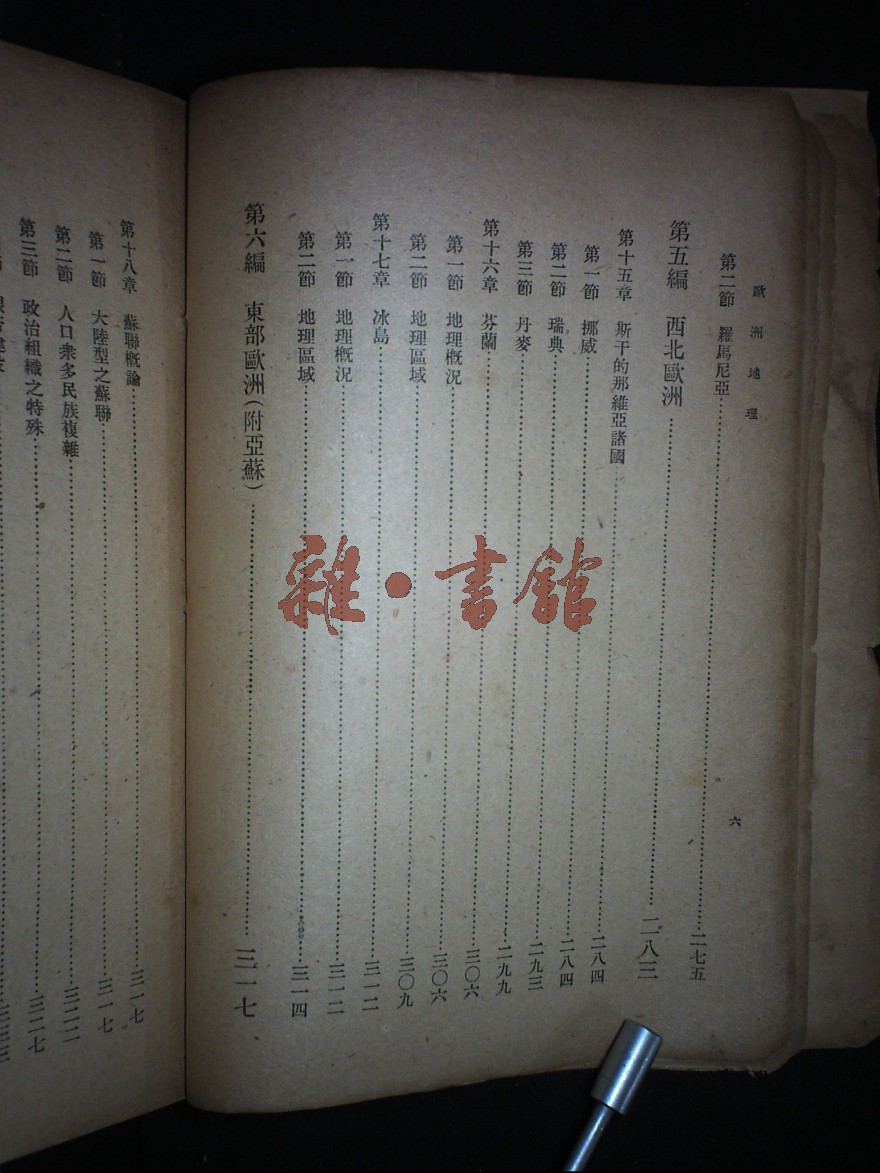 歐洲地理
六
第二節 羅馬尼亞……二七五
第五編 西北歐洲……二八三
第十五章 斯干的那維亞諸國……二八四
第一節 挪威……二八四
第二節 瑞典……二九三
第三節 丹麥……二九九
第十六章 芬蘭……三〇六
第一節 地理概況……三〇六
第二節 地理區域……三〇九
第十七章 冰島……三一二
第一節 地理概況……三一二
第二節 地理區域……三一四
第六編 東部歐洲(附亞蘇)……三一七
第十八章 蘇聯概論……三一七
第一節 大陸型之蘇聯……三一七
第二節 人口衆多民族複雜……三二二
第三節 政治組織之特殊……三二七
雜·書館